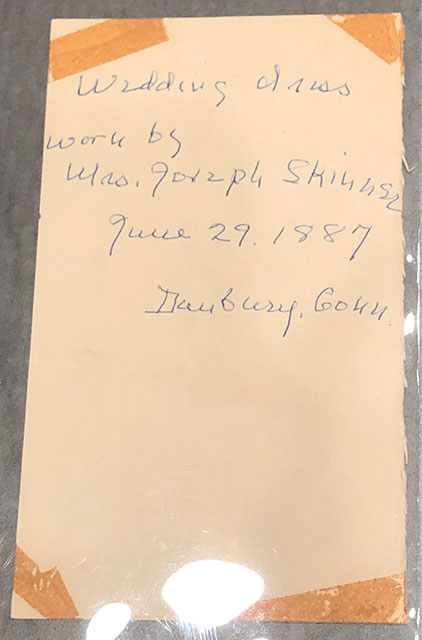 Wedding dress
worn by
Mrs. Joseph Skinner
June 29. 1887
Danbury, Conn.